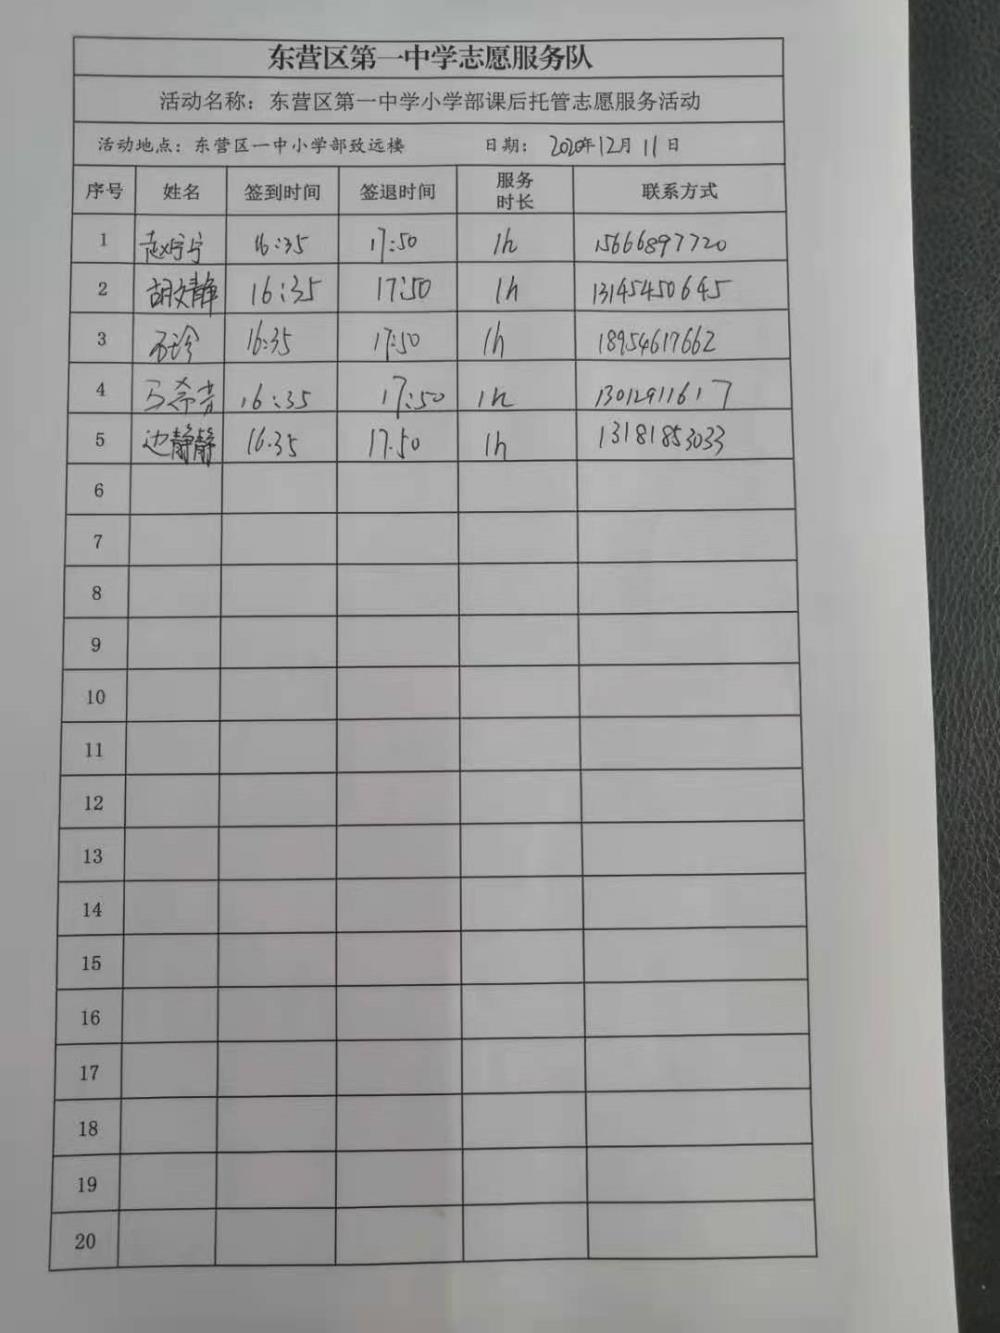 东营区第一中学志愿服务队
活动名称：东营区第一中学小学部课后托管志愿服务活动
活动地点：东营区一中小学部致远楼 日期：2020年12月11日
序号 姓名 签到时间 签退时间 服务时长 联系方式
1 赵宁宁 16:35 17:50 1h 15666897720
2 胡文静 16:35 17:50 1h 13145450645
3 石珍 16:35 17:50 1h 18954617662
4 马希芳 16:35 17:50 1h 13012911617
5 边静静 16.35 17.50 1h 13181853033
6
7
8
9
10
11
12
13
14
15
16
17
18
19
20